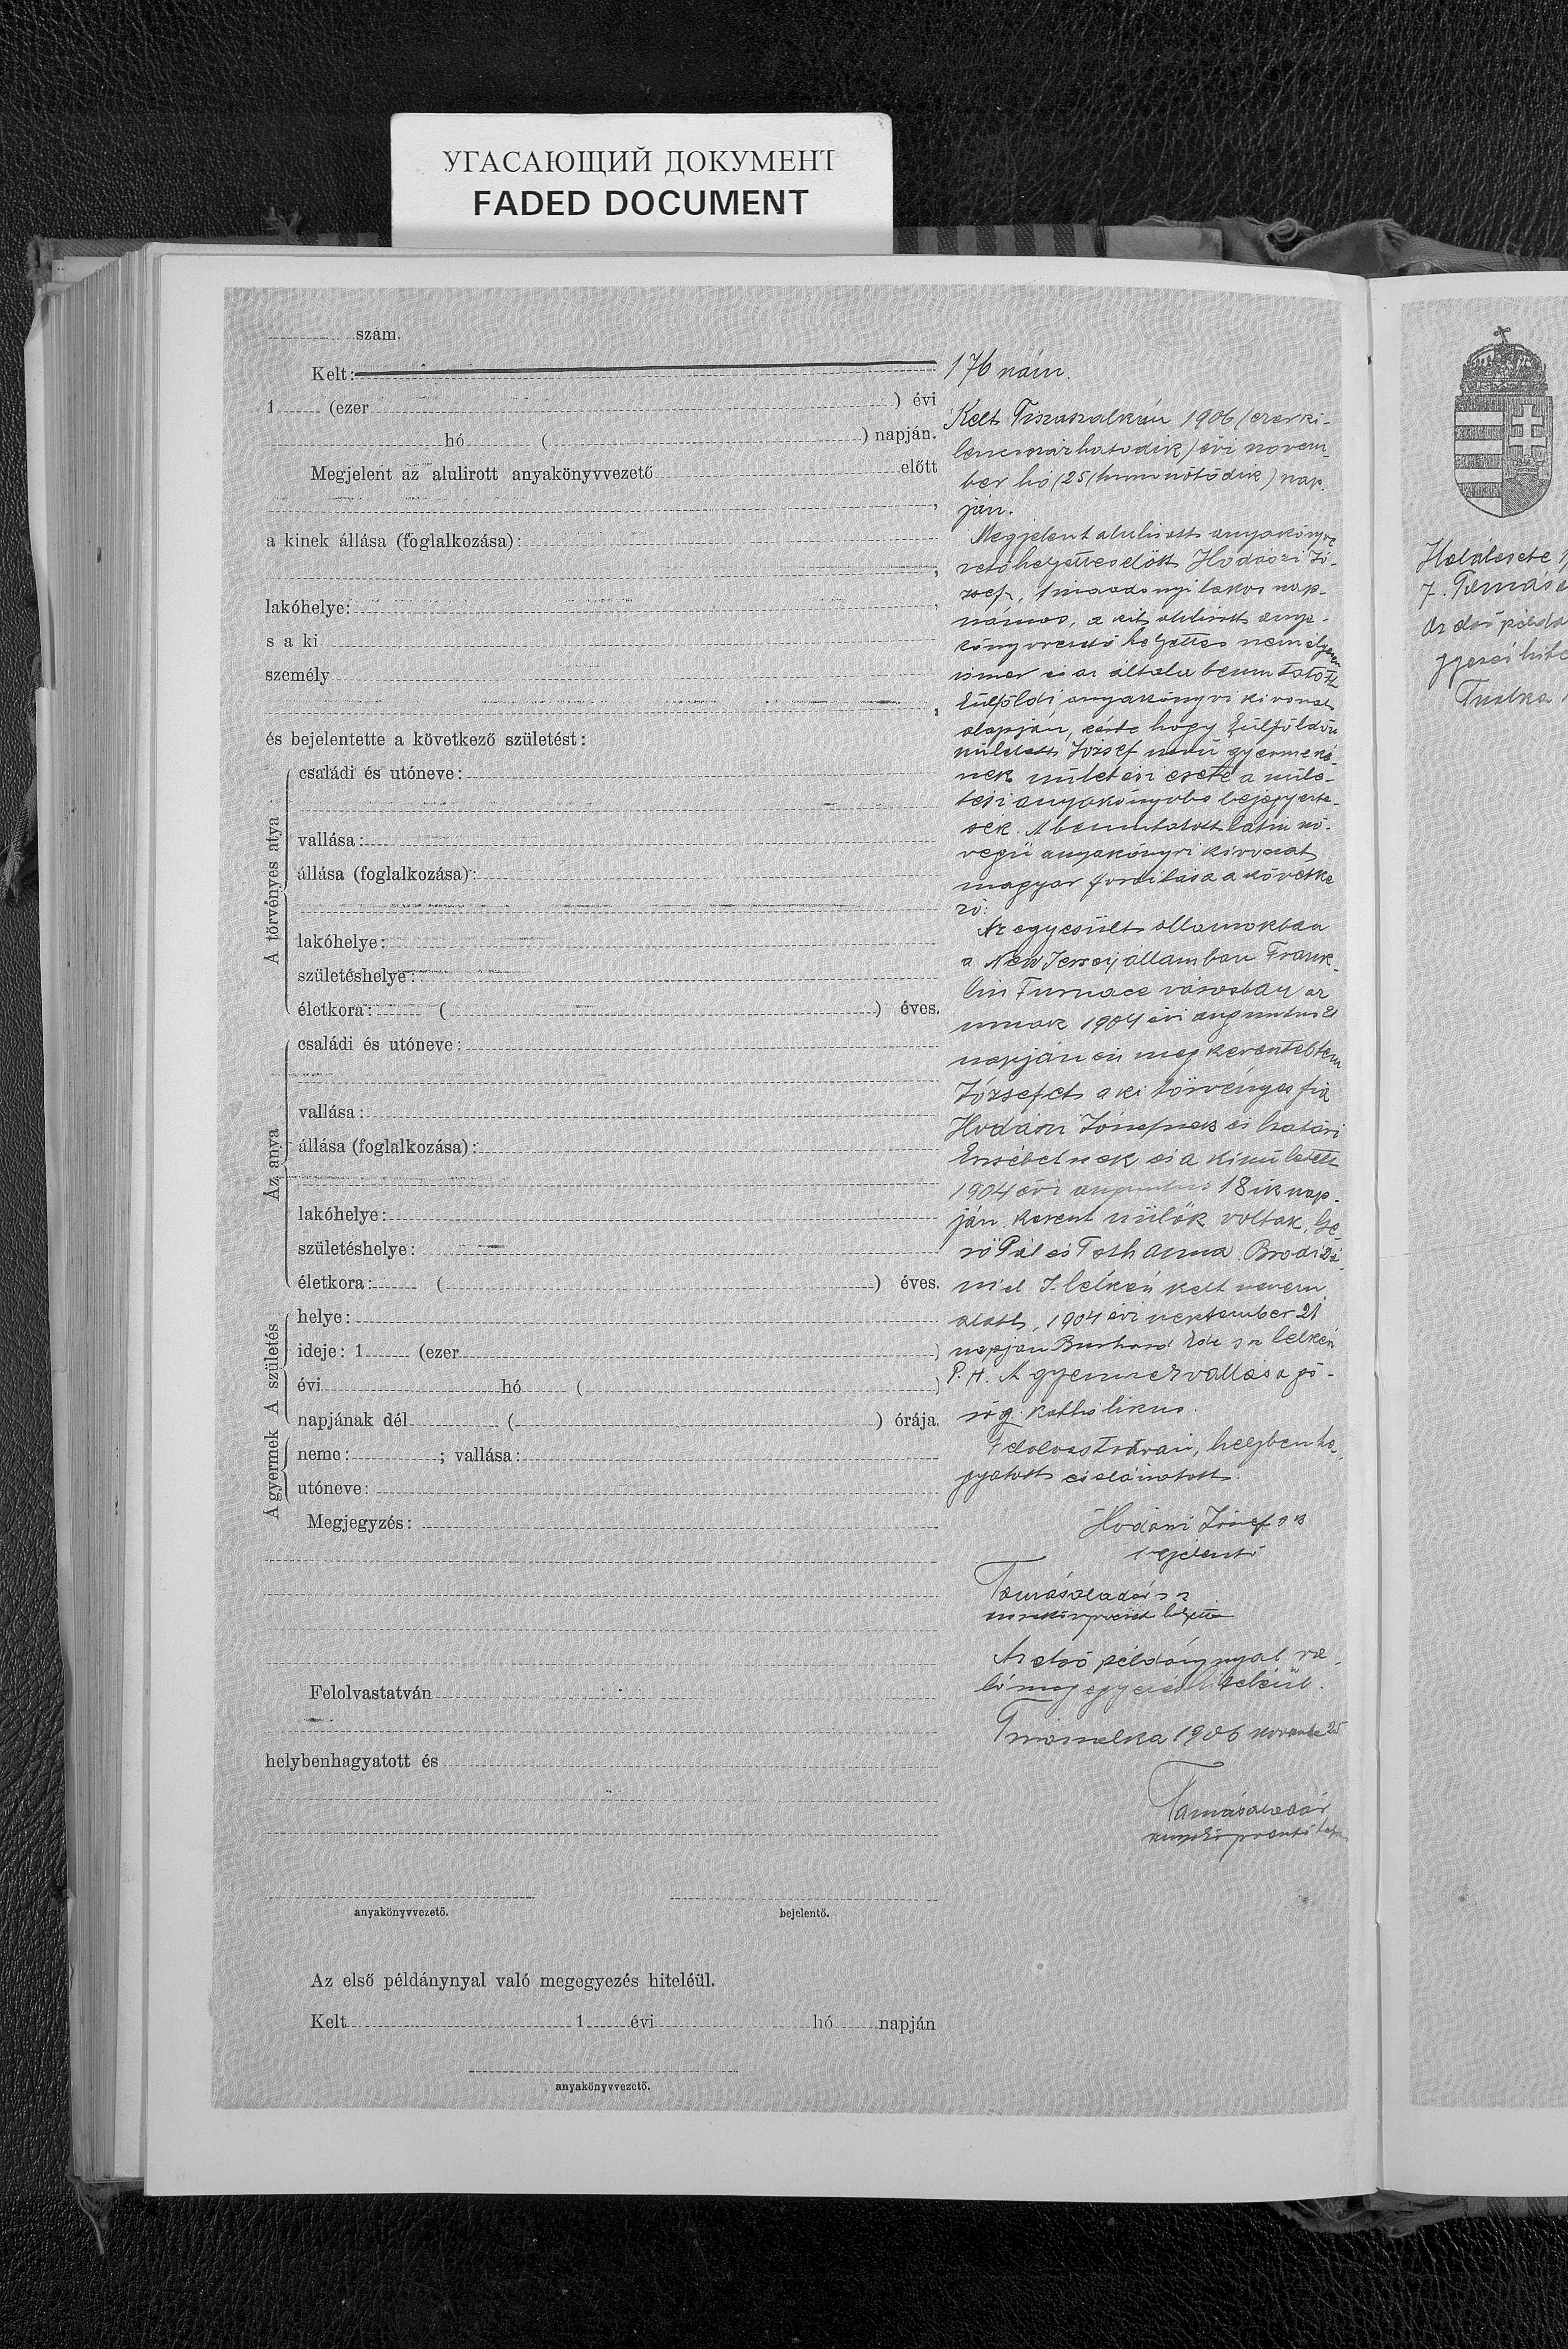 УГАСАЮЩИЙ ДОКУМЕНТ
FADED DOCUMENT
szám.
Kelt:
1 (ezer ) évi
hó ( ) napján.
Megjelent az alulirott anyakönyvvezető előtt
,
a kinek állása (foglalkozása):
,
lakóhelye: ,
s a ki
személy
,
és bejelentette a következő születést:
A törvényes atya
családi és utóneve:
vallása:
állása (foglalkozása):
lakóhelye:
születéshelye:
életkora: ( ) éves.
Az anya
családi és utóneve:
vallása:
állása (foglalkozása):
lakóhelye:
születéshelye:
életkora: ( ) éves.
A születés
helye:
ideje: 1 (ezer )
évi hó ( )
napjának dél ( ) órája.
A gyermek
neme: ; vallása:
utóneve:
Megjegyzés:
Felolvastatván
helybenhagyatott és
anyakönyvvezető. bejelentő.
Az első példánynyal való megegyezés hiteléül.
Kelt 1 évi hó napján
anyakönyvvezető.
176 szám.
Kelt Tiszaszalkán 1906 (ezerki-
lencszázhatodik) évi novem-
ber hó (25 (huszonötödik) nap-
ján.
Megjelent alulirott anyakönyv
vezetőhelyettes előtt Hodászi Jó-
zsef, lakos nap-
számos, a kit alulirott anya-
könyvvezető helyettes nem
ismer és az általa bemutatott
külföldi anyakönyvi kivonat
alapján, kérte hogy külföldön
született József nevű gyermeké-
nek születési esete a szüle-
tési anyakönyvbe bejegyeztes-
sék. A bemutatott latin szö-
vegű anyakönyvi kivonat
magyar forditása a követke
ző:
Az egyesült államokban
a New Jersey államban Frank-
lin Furnace városban az
1904 évi augusztus 21
napján én megkereszteltem
Józsefet a ki törvényes fia
Hodászi Józsefnek és
Erzsébetnek és a ki született
1904 évi augusztus 18ik nap-
ján. Kereszt szülők voltak,
Pál és Toth Anna.
kelt nevem
alatt, 1904 évi szeptember 21
napján lelkész
P. H. A gyermek vallása gö-
rög katholikus.
Felolvastatván, helybenha-
gyatott és aláiratott.
Hodászi József sk
bejelentő
Tamás Aladár
anyakönyvvezető helyettes
Az első példánynyal va-
ló megegyezés hiteléül.
Tiszaszalka 1906 november 25
Tamás Aladár
anyakönyvvezető
Haláleset
7. Tamás
Az első példá